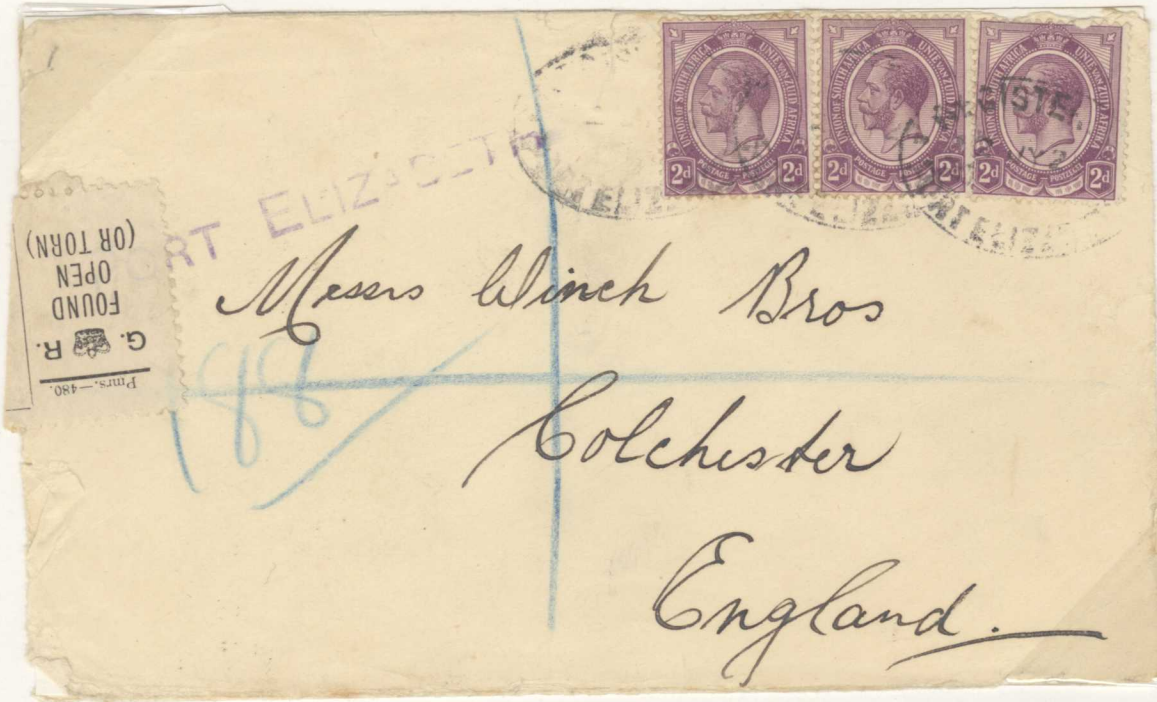 UNION OF SOUTH AFRICA UNIE VAN ZUID AFRIKA
POSTAGE POSTZEGEL
2d 2d
UNION OF SOUTH AFRICA UNIE VAN ZUID AFRIKA
POSTAGE POSTZEGEL
2d 2d
UNION OF SOUTH AFRICA UNIE VAN ZUID AFRIKA
POSTAGE POSTZEGEL
2d 2d
PORT ELIZABETH
Pmrs.—480.
G. R.
FOUND
OPEN
(OR TORN)
Messrs Winch Bros
188
Colchester
England.